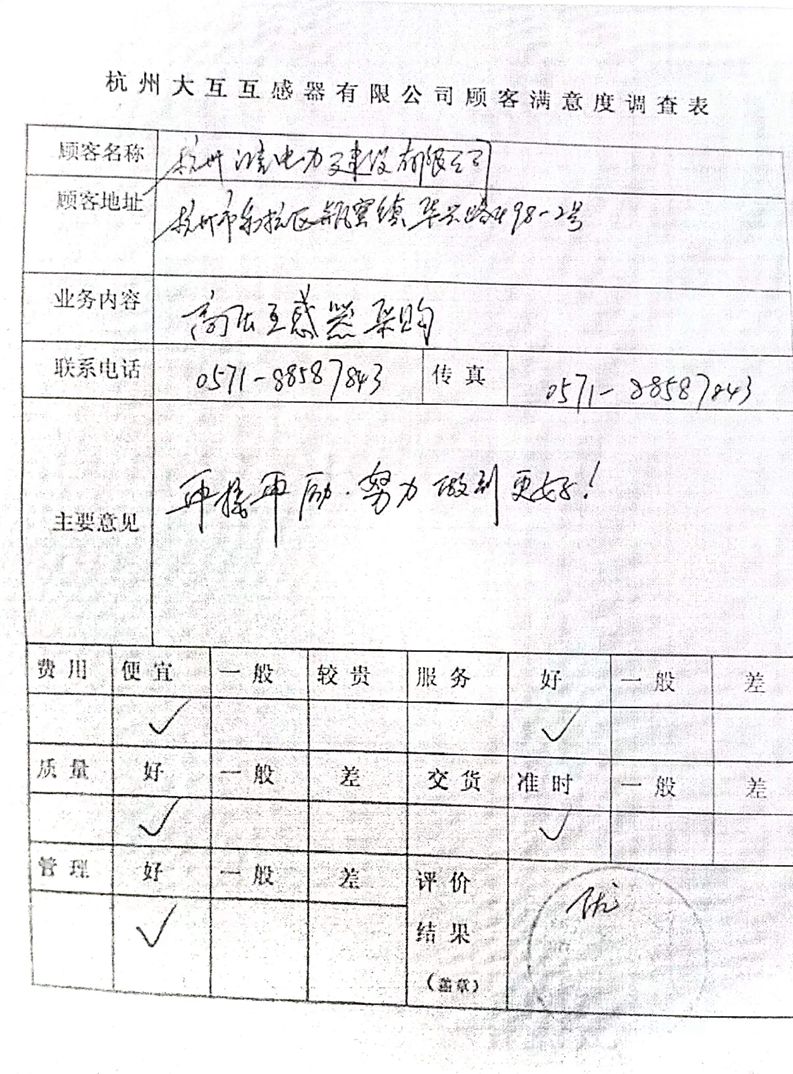 杭州大互互感器有限公司顾客满意度调查表
顾客名称 杭州 电力建设有限公司
顾客地址 杭州市余杭区瓶窑镇华兴路498-2号
业务内容 高压互感器采购
联系电话 0571-88587843 传真 0571-88587843
主要意见 再接再励.努力做到更好!
费用 便宜 一般 较贵 服务 好 一般 差
✓ ✓
质量 好 一般 差 交货 准时 一般 差
✓ ✓
管理 好 一般 差 评价
✓ 结果 优
(盖章)